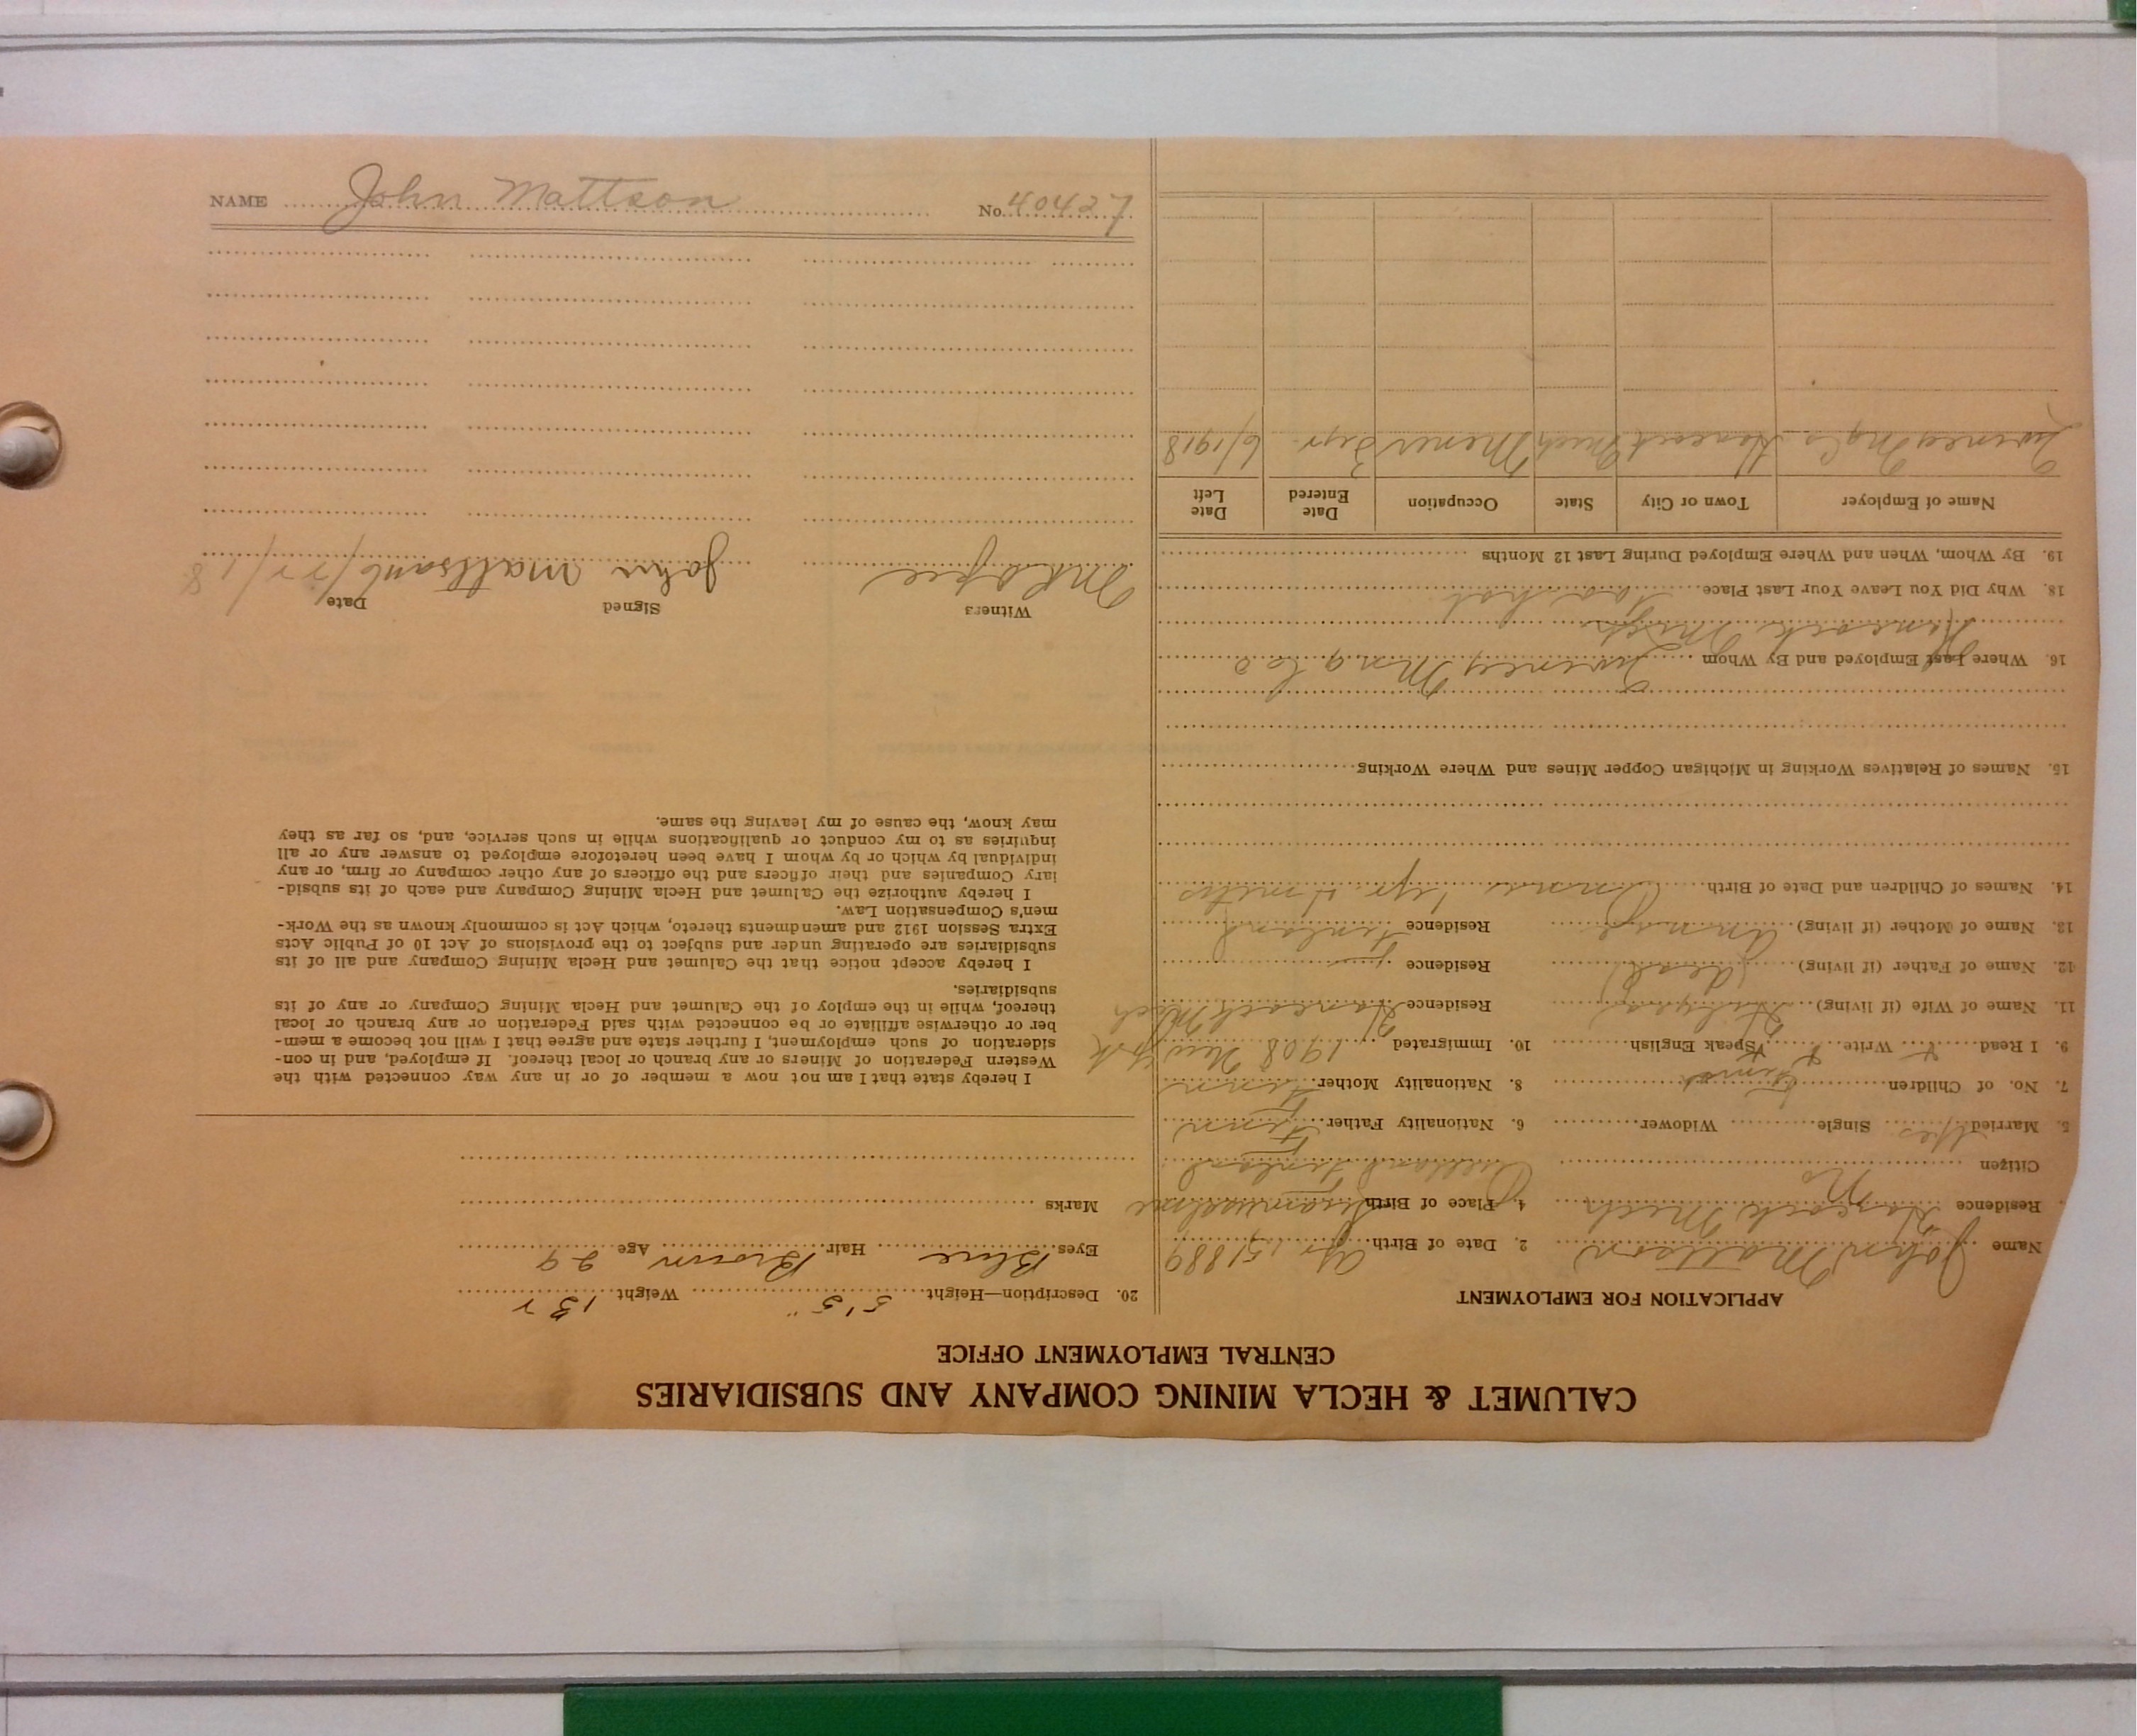 CALUMET & HECLA MINING COMPANY AND SUBSIDIARIES
CENTRAL EMPLOYMENT OFFICE
APPLICATION FOR EMPLOYMENT
Name John Mattson 2. Date of Birth Apr 15 1889
Residence Hancock Mich 4. Place of Birth
Citizen No Finland
5. Married Yes Single Widower 6. Nationality Father Finn
7. No. of Children 8. Nationality Mother Finn
9. I Read Write Speak English 10. Immigrated 1908 New York
11. Name of Wife (if living) Residence Hancock Mich
12. Name of Father (if living) (dead) Residence
13. Name of Mother (if living) Anna Residence Finland
14. Names of Children and Date of Birth 1 yr 4 mths
15. Names of Relatives Working in Michigan Copper Mines and Where Working
16. Where Last Employed and By Whom Quincy Mng Co
Hancock Mich
18. Why Did You Leave Your Last Place Too hot
19. By Whom, When and Where Employed During Last 12 Months
Name of Employer Town or City State Occupation Date Entered Date Left
Quincy Mng Co Hancock Mich Miner 3 yr 6/1918
20. Description—Height 5'5" Weight 137
Eyes Blue Hair Brown Age 29
Marks
I hereby state that I am not now a member of or in any way connected with the
Western Federation of Miners or any branch or local thereof. If employed, and in con-
sideration of such employment, I further state and agree that I will not become a mem-
ber or otherwise affiliate or be connected with said Federation or any branch or local
thereof, while in the employ of the Calumet and Hecla Mining Company or any of its
subsidiaries.
I hereby accept notice that the Calumet and Hecla Mining Company and all of its
subsidiaries are operating under and subject to the provisions of Act 10 of Public Acts
Extra Session 1912 and amendments thereto, which Act is commonly known as the Work-
men's Compensation Law.
I hereby authorize the Calumet and Hecla Mining Company and each of its subsid-
iary Companies and their officers and the officers of any other company or firm, or any
individual by which or by whom I have been heretofore employed to answer any or all
inquiries as to my conduct or qualifications while in such service, and, so far as they
may know, the cause of my leaving the same.
Witness Signed Date
John Mattson 6/27/18
NAME John Mattson No. 40427